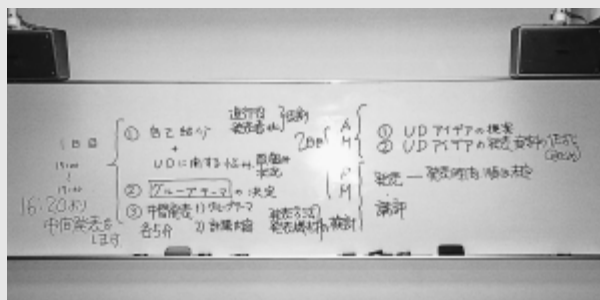 1日目
15:00
〜
17:00
16:20より
中間発表を
します
① 自己紹介
+
UDに関する
② グループテーマ の決定
③ 中間発表 1) グループテーマ
各5分 2) 計画内容
進行役
発表者 役割
発表方法
検討
2日目
AM
① UDアイデアの提案
② UDアイデアの発表資料の作成
PM
発表 — 発表時間 順は未定
講評